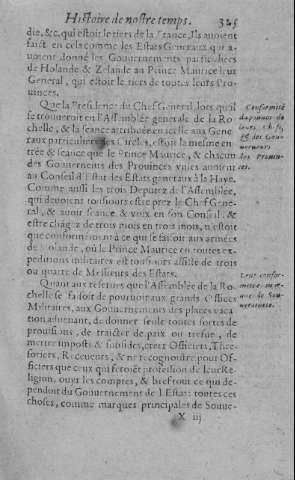 Histoire de nostre temps. 325
die, &c. qui estoit le tiers de la France, Ils auoient
faict en cela comme les Estats Generaux qui a-
uoient donné les Gouuernements particuliers
de Holande & Zelande au Prince Maurice leur
General, qui est le tiers de toutes leurs Pro-
uinces.
Que la Presidence du Chef General, lors qu'il
se trouueroit en l'Assemblée generale de la Ro-
chelle, & la seance attribuée en icelle aux Gene-
raux particuliers des Circles, estoit la mesme en-
trée & seance que le Prince Maurice, & chacun
des Gouuernements des Prouinces vnies auoient
au Conseil d'Estat des Estats generaux à la Haye.
Comme aussi les trois Deputez de l'Assemblée,
qui deuoient tousiours estre prez le Chef Gene-
ral, & auoir seance & voix en son Conseil, &
estre chāgez de trois mois en trois mois, n'estoit
que conformément à ce qui se faisoit aux armées
de Holande, où le Prince Maurice en toutes ex-
peditions militaires est tousiours assisté de trois
ou quatre de Messieurs des Estats.
Quant aux reserues que l'Assemblée de la Ro-
chelle se faisoit de pouruoir aux grands Offices
Militaires, aux Gouuernements des places vaca-
tion aduenant, de donner seule toutes sortes de
prouisions, de traicter de paix ou trefue, de
mettre imposts & subsides, creer Officiers, Thre-
soriers, Receueurs, & ne recognoistre pour Of-
ficiers que ceux qui feroiēt profession de leur Re-
ligion, ouyr les comptes, & bref tout ce qui de-
pendoit du Gouuernement de l'Estat: toutes ces
choses, comme marques principales de Souue-
X iij
Conformité
du pouuoir de
leurs Chefs,
& des Gou-
uerneurs
des Prouin-
ces.